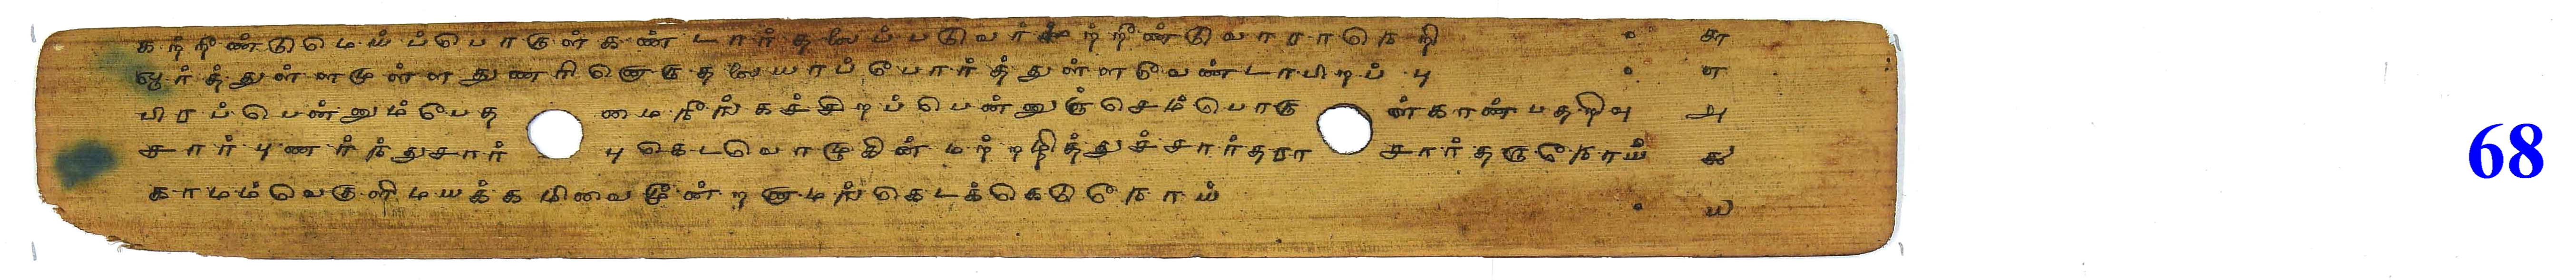 கற்றீண்டுமெய்ப்பொருள்கண்டார்தலைப்படுவர்மற்றீண்டுவாராநெறி ௬
ஓர்த்துள்ளமுள்ளதுணரினொருதலையாப்போர்த்துள்ளவேண்டாபிறப்பு ௭
பிறப்பென்னும்பேதமைநீங்கச்சிறப்பென்னுஞ்செம்பொருள்காண்பதறிவு ௮
சார்புணர்ந்துசார்புகெடவொழுகின்மற்றழித்துச்சார்தராசார்தருநோய் ௯
காமம்வெகுளிமயக்கமிவைமூன்றனாமங்கெடக்கெடுநோய் ௰
68